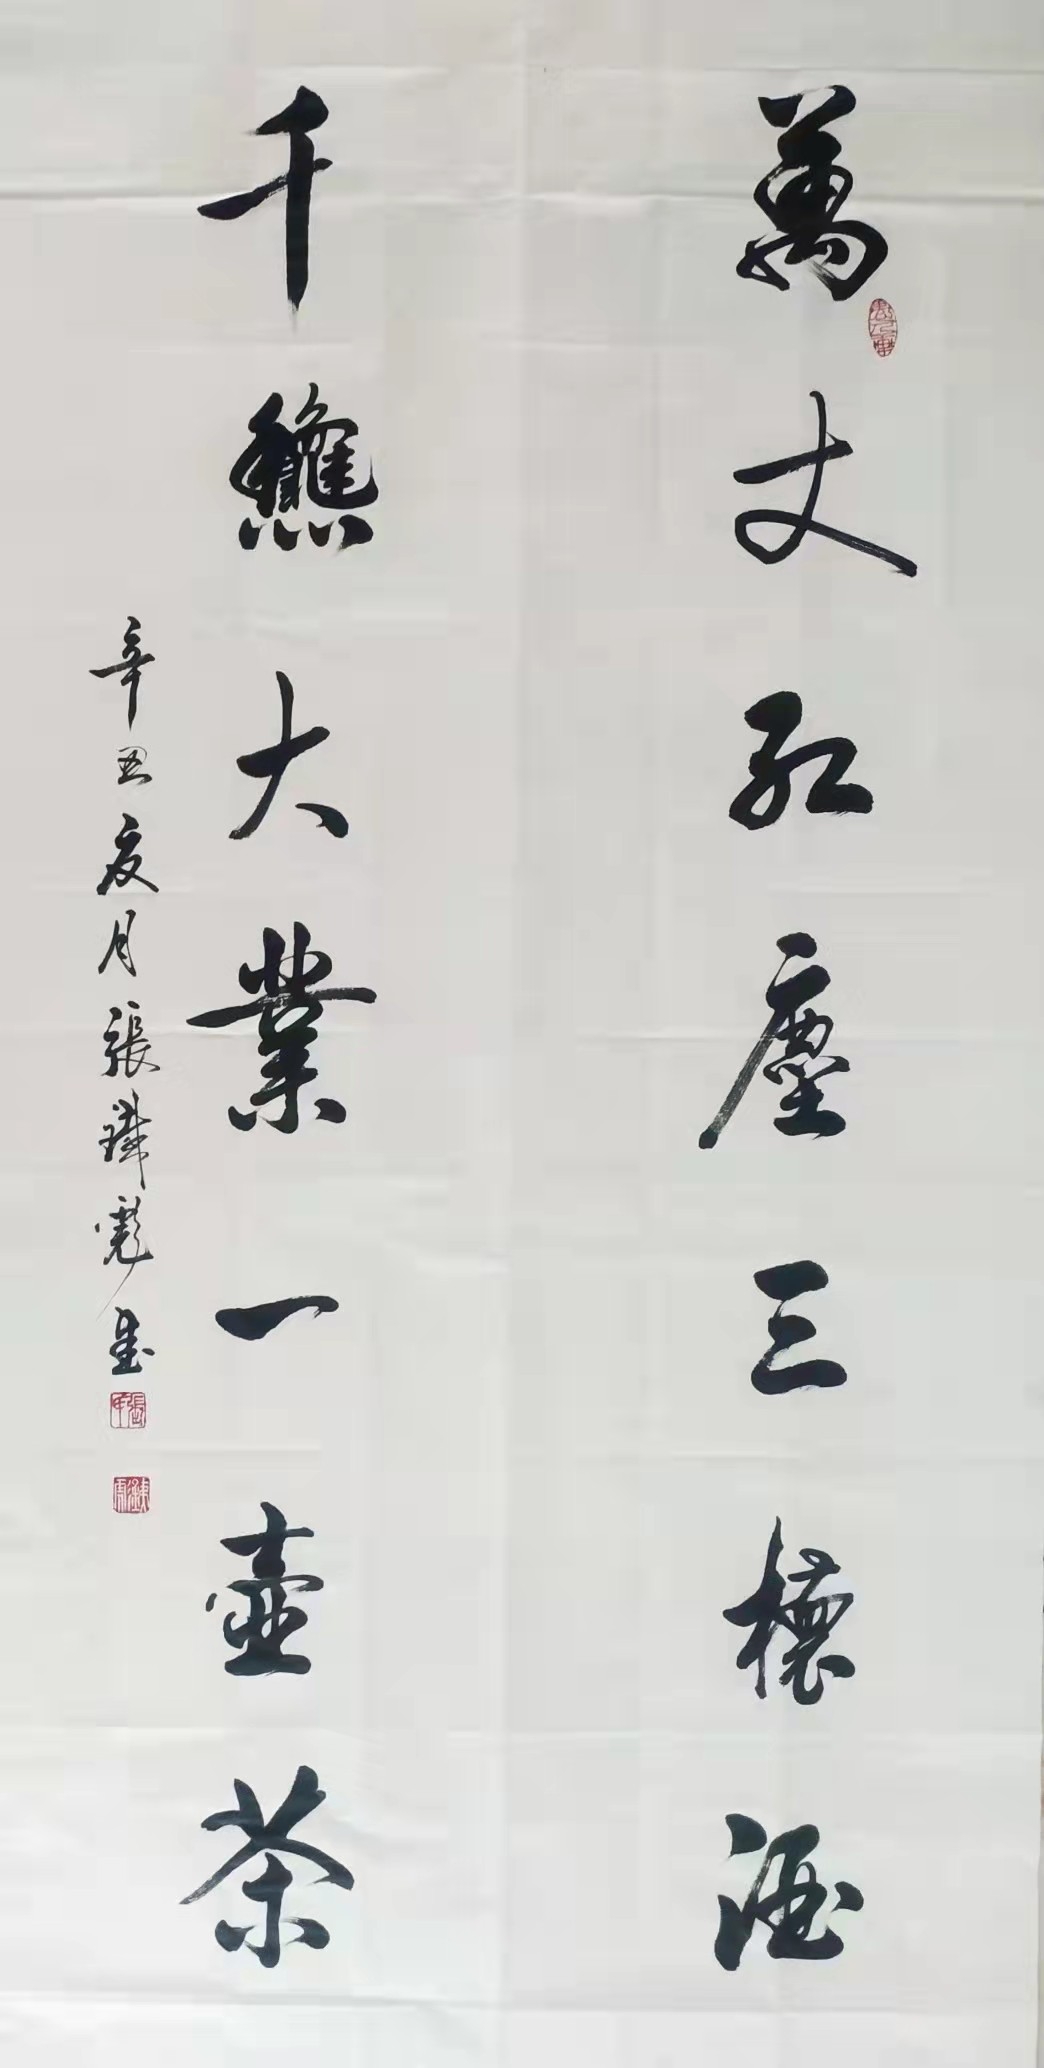 萬丈紅塵三杯酒
千龝大業一壺茶
辛丑夏月張鐵彪書